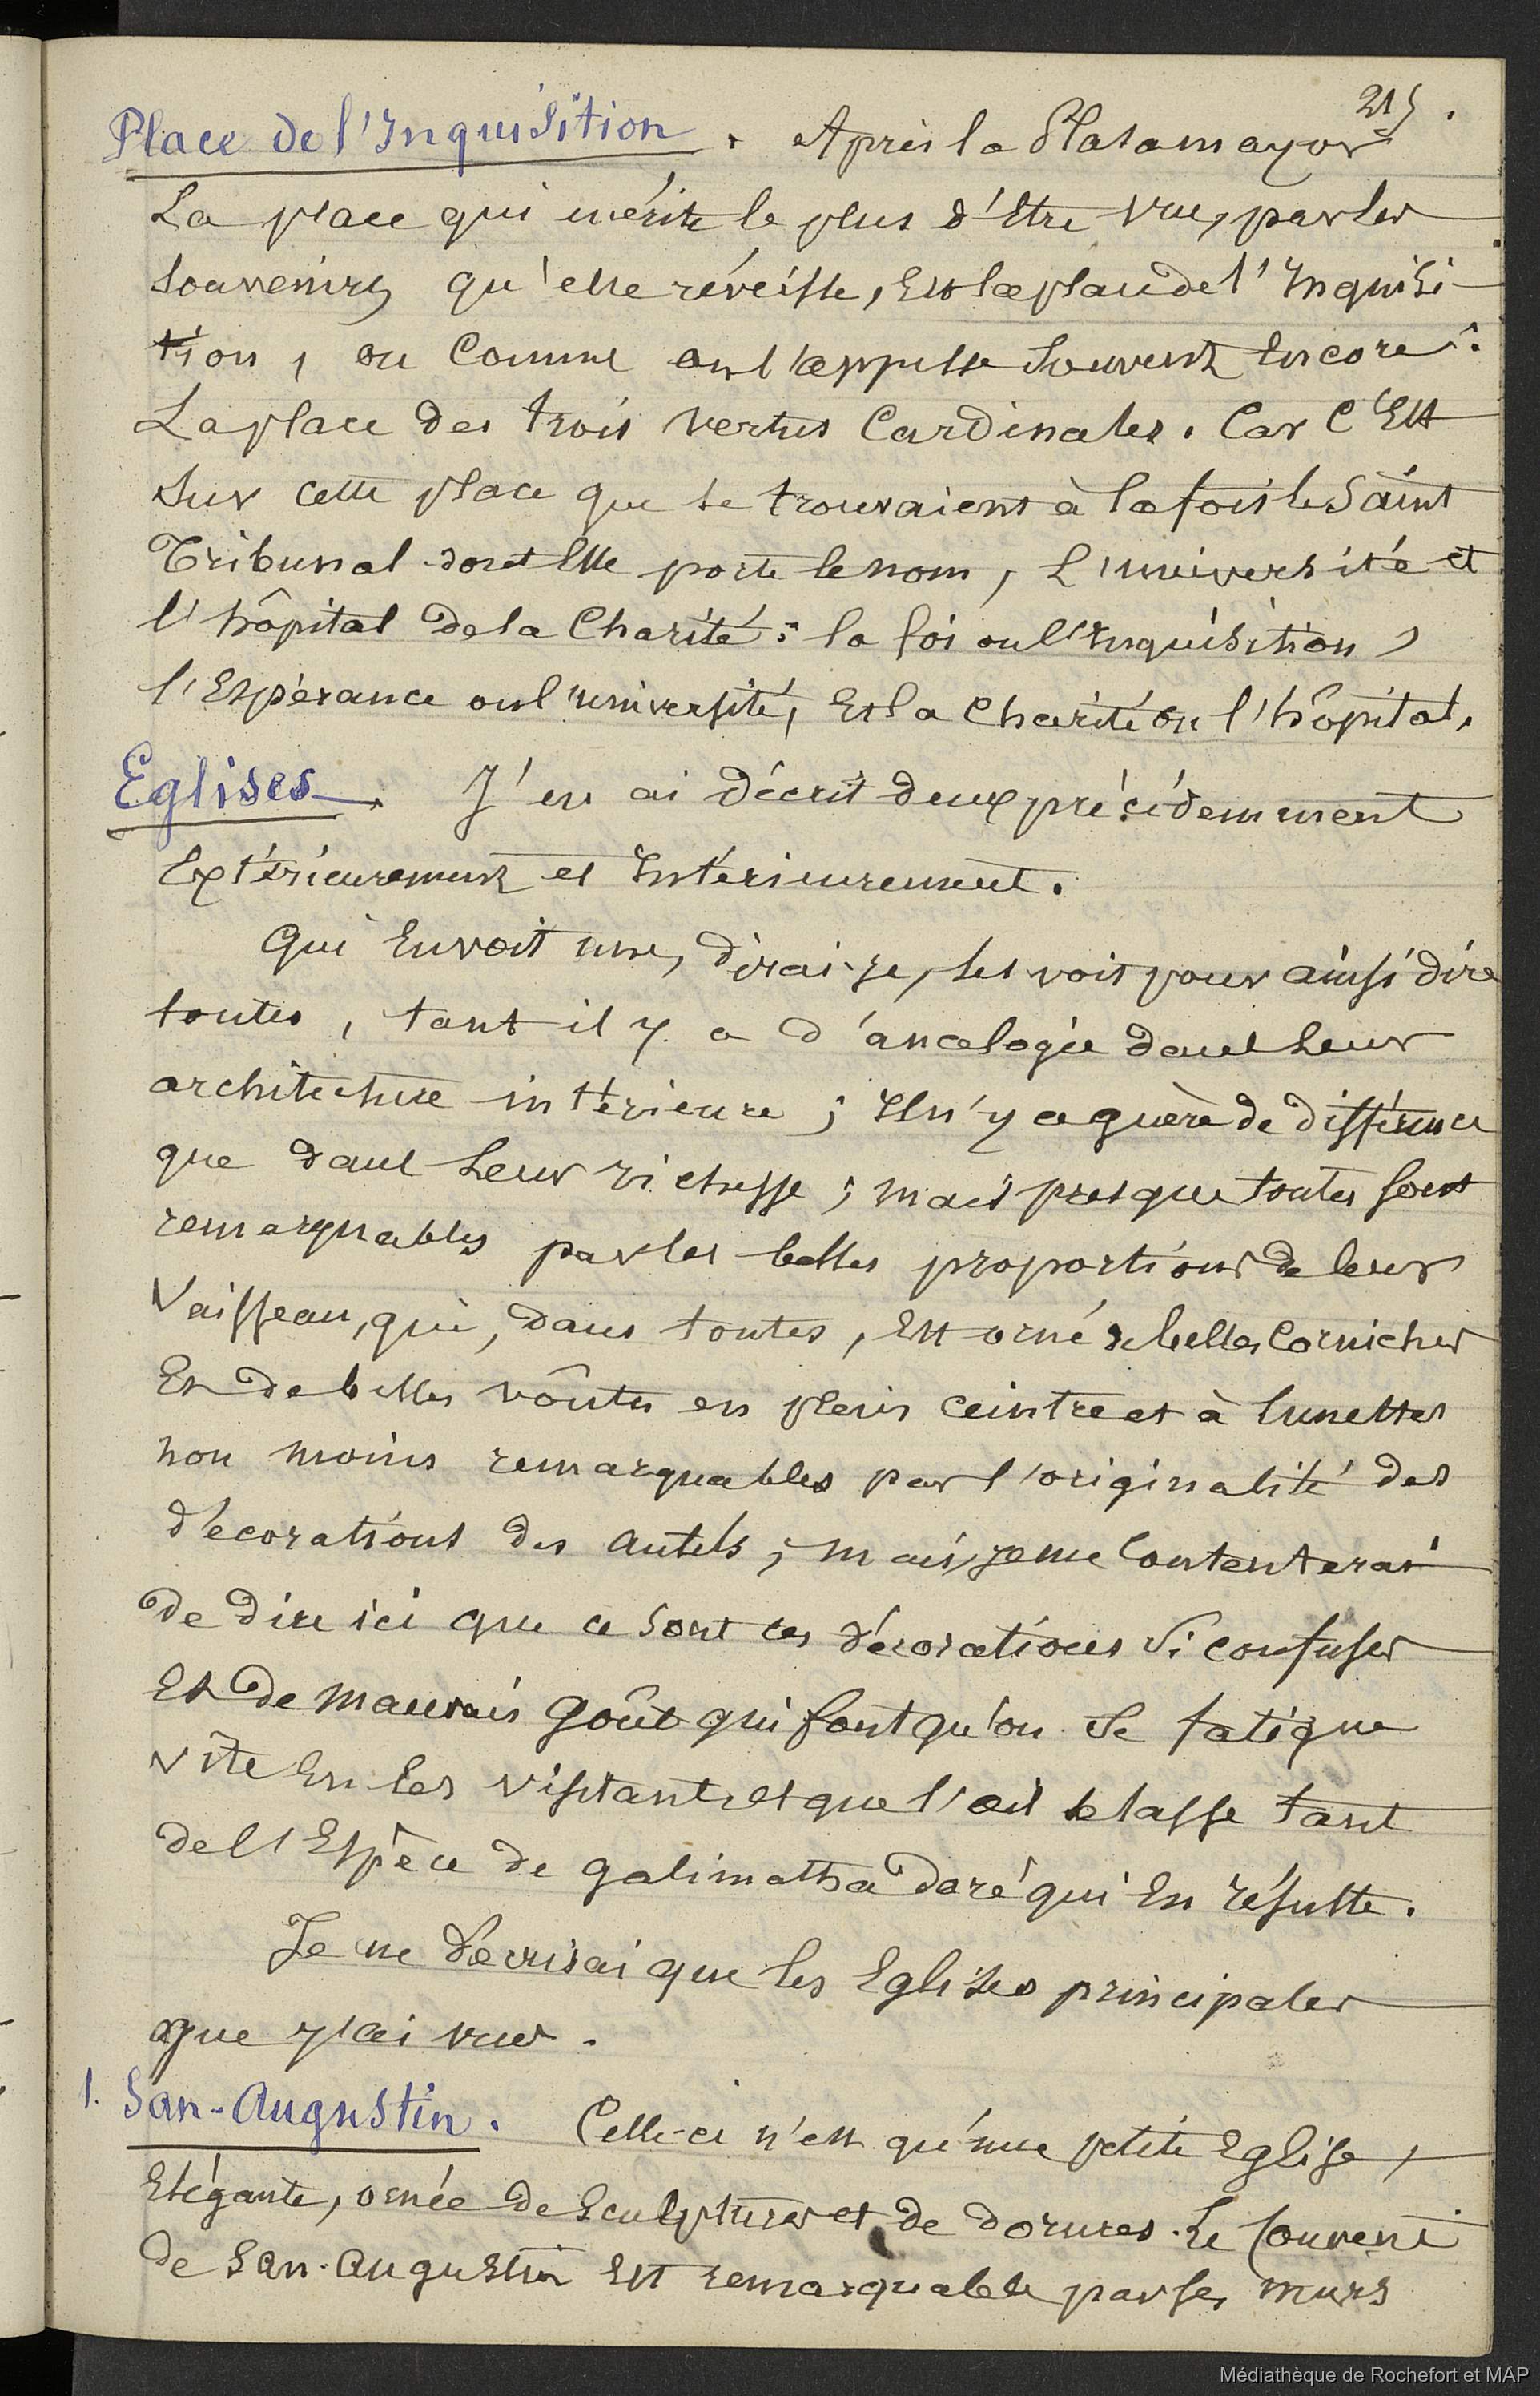 215.
Place de l'Inquisition. Après la Plasamayor
La place qui mérite le plus d'Etre vue, par les
souvenirs qu'elle réveille, Est la place de l'Inquisi-
tion, ou Comme on l'appelle Souvent Encore:
La place des trois vertus Cardinales. Car C'Est
sur cette place que se trouvaient à la fois le Saint
Tribunal dont Elle porte le nom, L'université et
l'hôpital de la Charité: la foi ou l'Inquisition,
l'Espérance ou l'université, Et la Charité ou l'hôpital.
Eglises. J'en ai Décrit deux précédemment
Extérieurement et Intérieurement.
Qui En voit une, dirai-je, les voit pour ainsi dire
toutes, tant il y a d'analogie dans leur
architecture intérieure; Il n'y a guère de différence
que dans leur richesse; mais presque toutes sont
remarquables par les belles proportions de leur
Vaisseau, qui, dans toutes, Est orné de belles Corniches
Et de belles voûtes en plein ceintre et à lunettes
non moins remarquables par l'originalité des
décorations des autels; mais je me Contenterai
de dire ici que ce sont ces décorations si confuses
Et de mauvais goût qui font qu'on se fatigue
vite En les visitant et que l'œil se lasse tant
de l'Espèce de galimathia doré qui En résulte.
Je ne décrirai que les Eglises principales
que j'ai vues.
1. San-Augustin. Celle-ci n'est qu'une petite Eglise,
Elégante, ornée de Sculptures et de dorures. Le Couvent
de San-Augustin Est remarquable par ses murs
Médiathèque de Rochefort et MAP